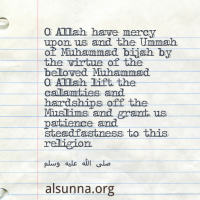 O Allah have mercy
upon us and the Ummah
of Muhammad bijah by
the virtue of the
beloved Muhammad
O Allah lift the
calamties and
hardships off the
Muslims and grant us
patience and
steadfastness to this
religion
صلى الله عليه وسلم
alsunna.org